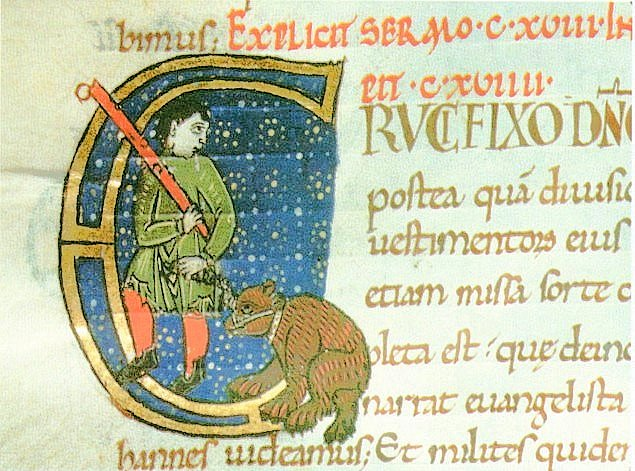 bimus; EXPLICIT SERMO·C·XVIII·IN
PIT·C·XVIIII·
CRUCIFIXO DNO
postea quā diuisio
uestimentorū eius
etiam missa sorte c
pleta est · quę deinc
narrat euangelista
hannes uideamus; Et milites quidem